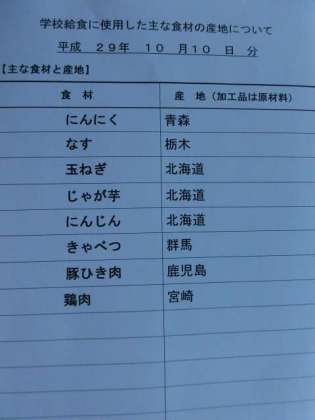 学校給食に使用した主な食材の産地について
平成 29年 10 月10 日 分
【主な食材と産地】
食 材 産 地（加工品は原材料）
にんにく 青森
なす 栃木
玉ねぎ 北海道
じゃが芋 北海道
にんじん 北海道
きゃべつ 群馬
豚ひき肉 鹿児島
鶏肉 宮崎